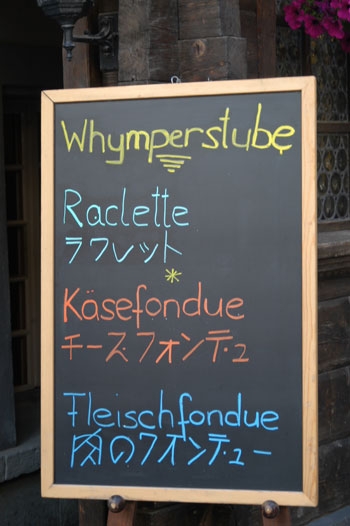 Whymperstube
Raclette
ラクレット
Käsefondue
チーズフォンデュ
Fleischfondue
肉のフォンデュー